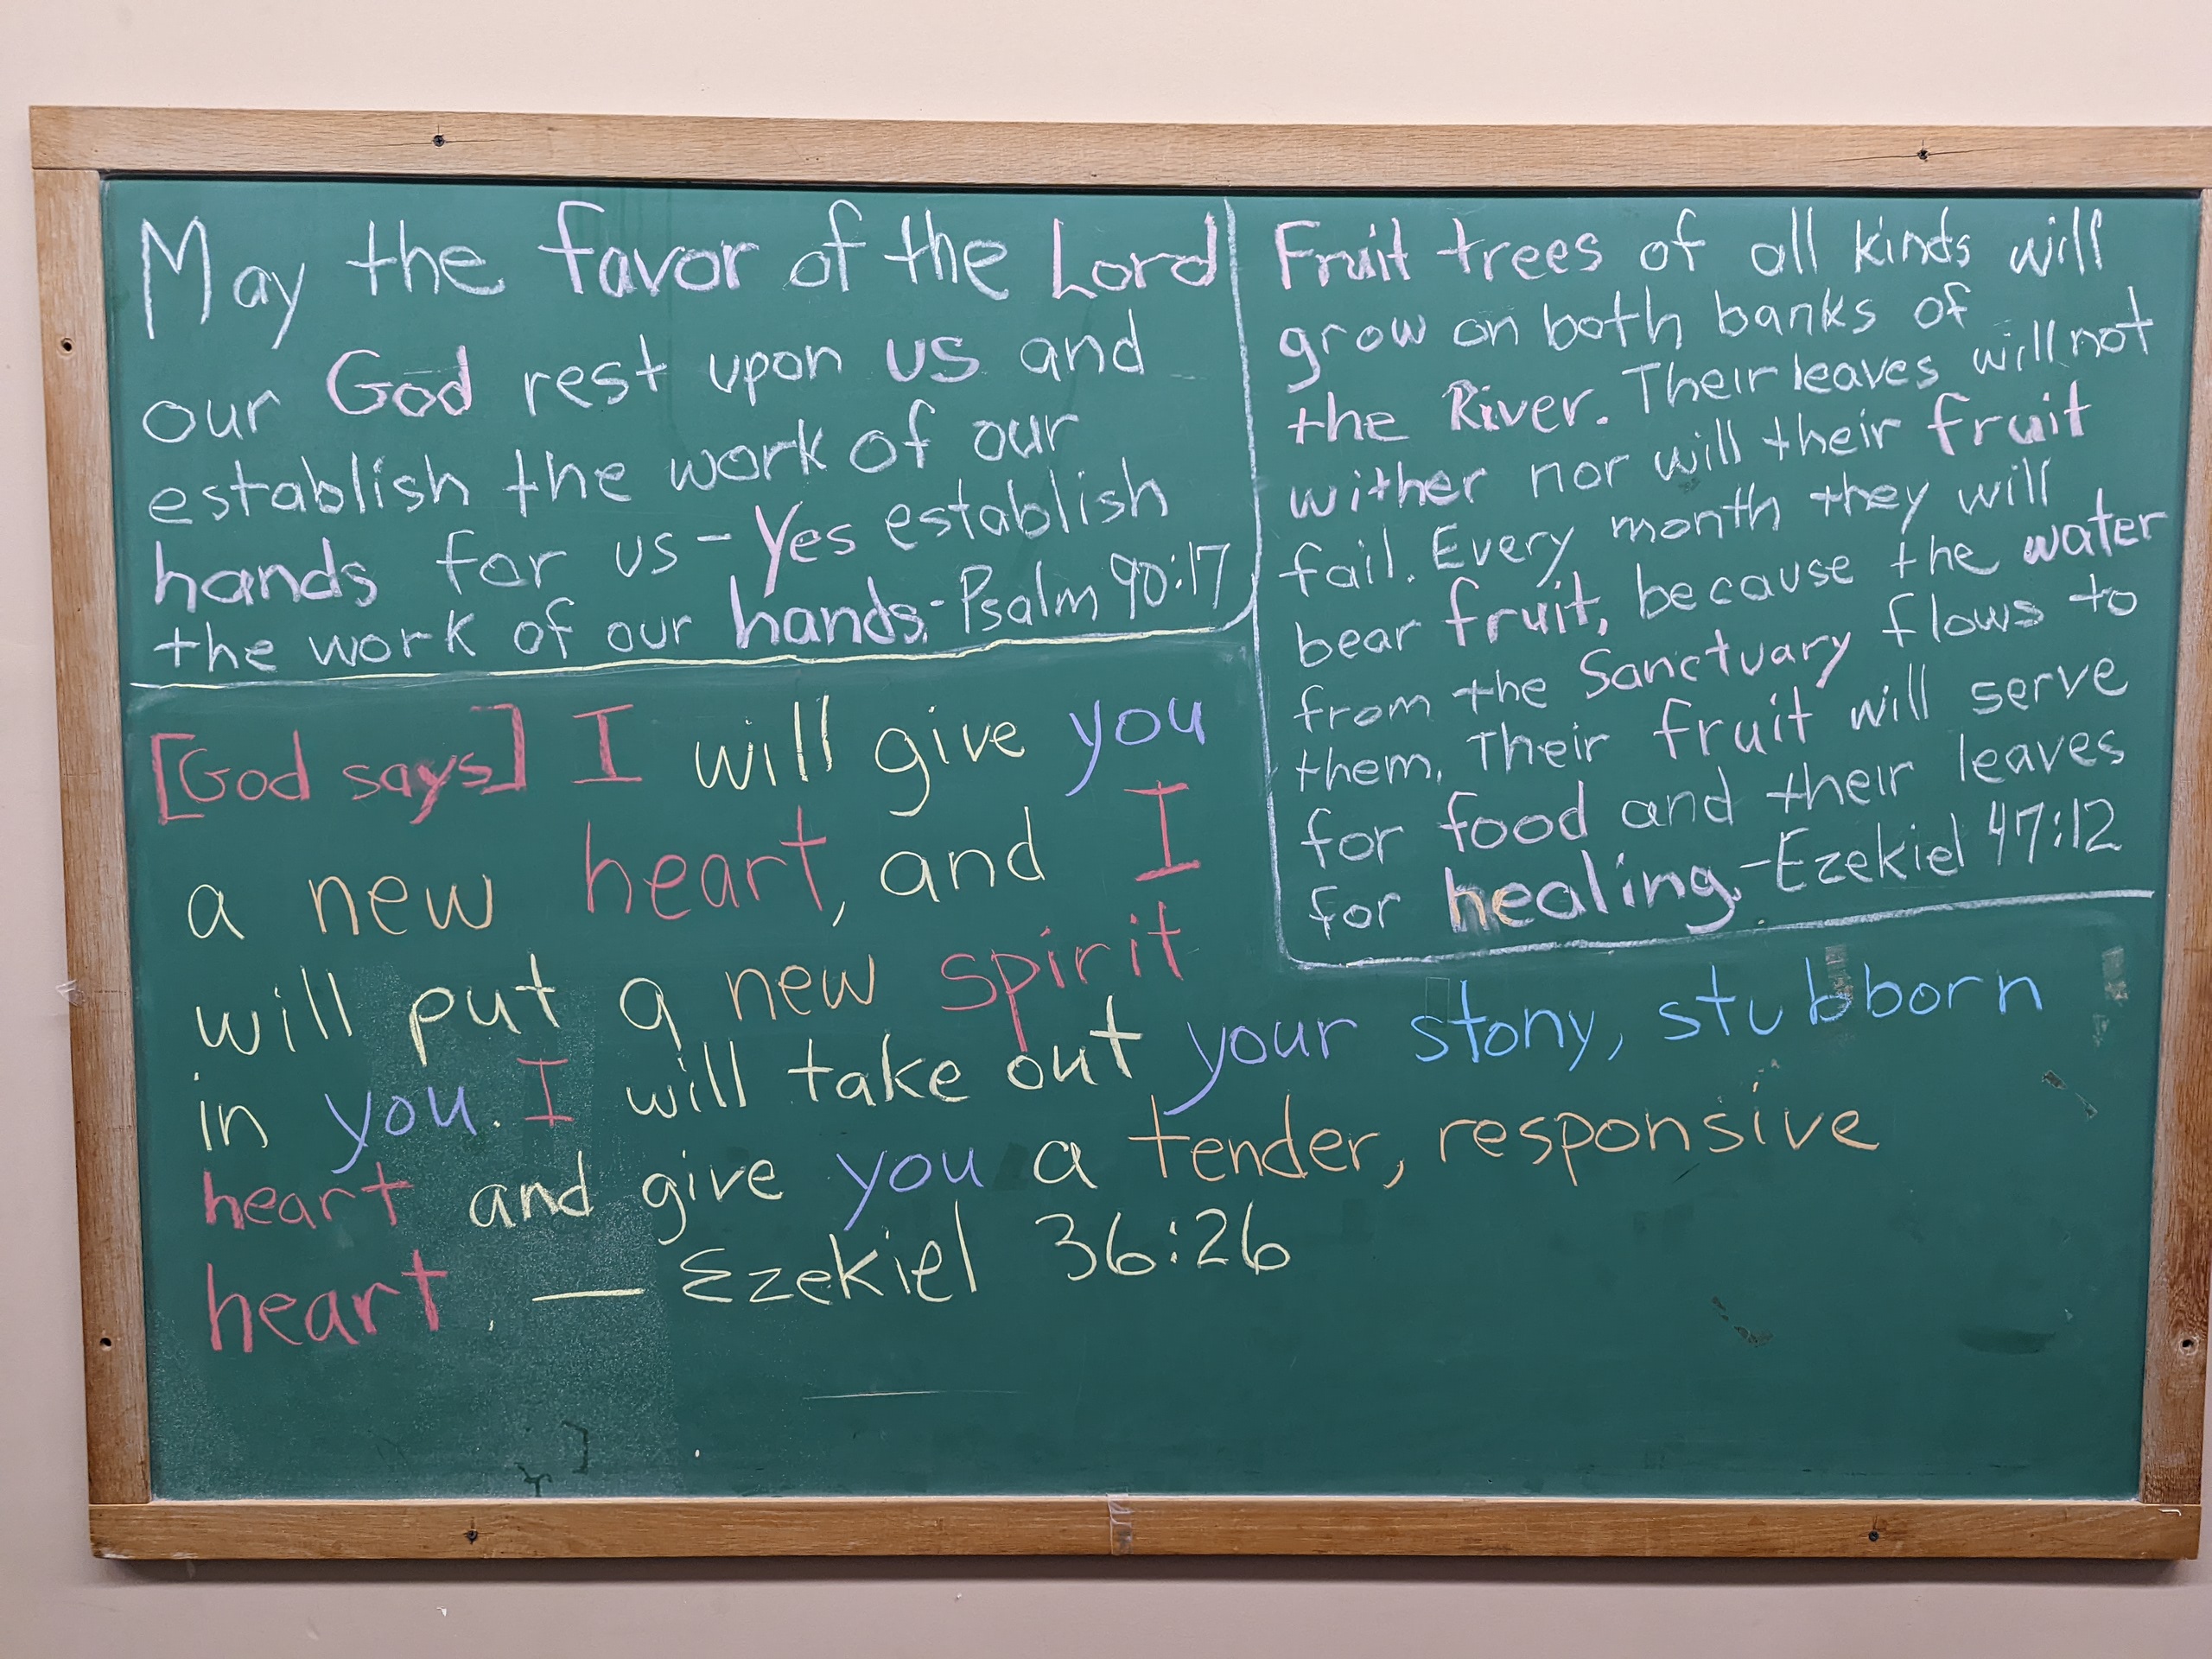 May the favor of the Lord
our God rest upon us and
establish the work of our
hands for us - Yes establish
the work of our hands. - Psalm 90:17
Fruit trees of all kinds will
grow on both banks of
the River. Their leaves will not
wither nor will their fruit
fail. Every month they will
bear fruit, because the water
from the Sanctuary flows to
them. Their fruit will serve
for food and their leaves
for healing. - Ezekiel 47:12
[God says] I will give you
a new heart, and I
will put a new spirit
in you. I will take out your stony, stubborn
heart and give you a tender, responsive
heart. — Ezekiel 36:26